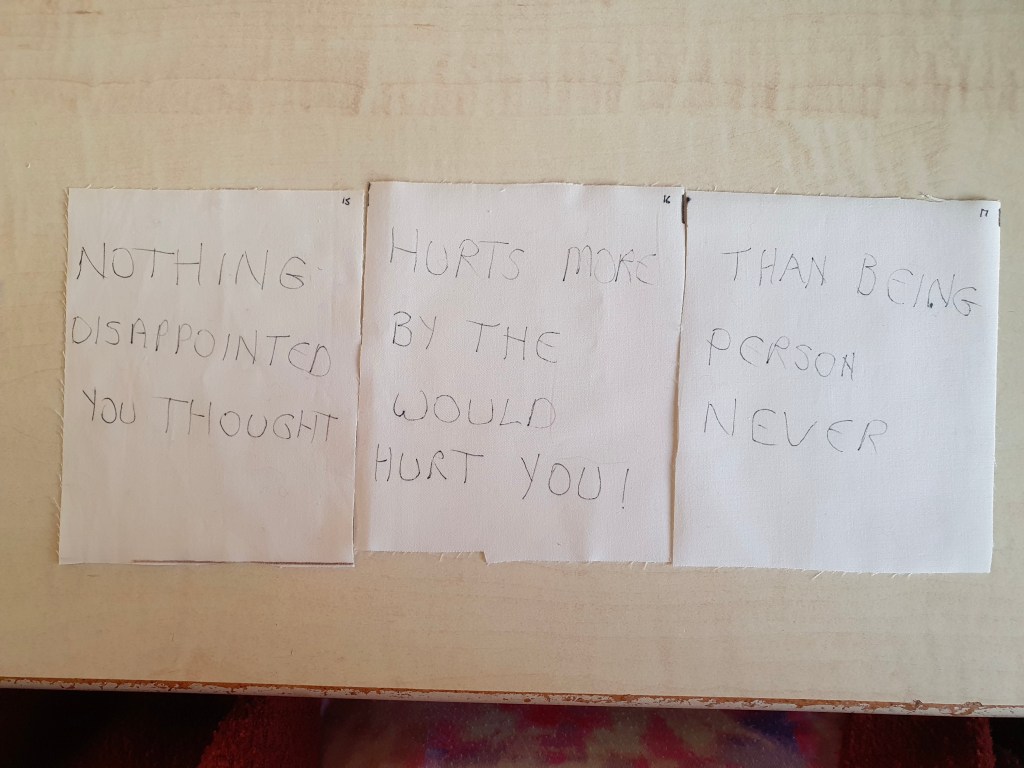 15 16 17
NOTHING HURTS MORE THAN BEING
DISAPPOINTED BY THE PERSON
YOU THOUGHT WOULD NEVER
HURT YOU!